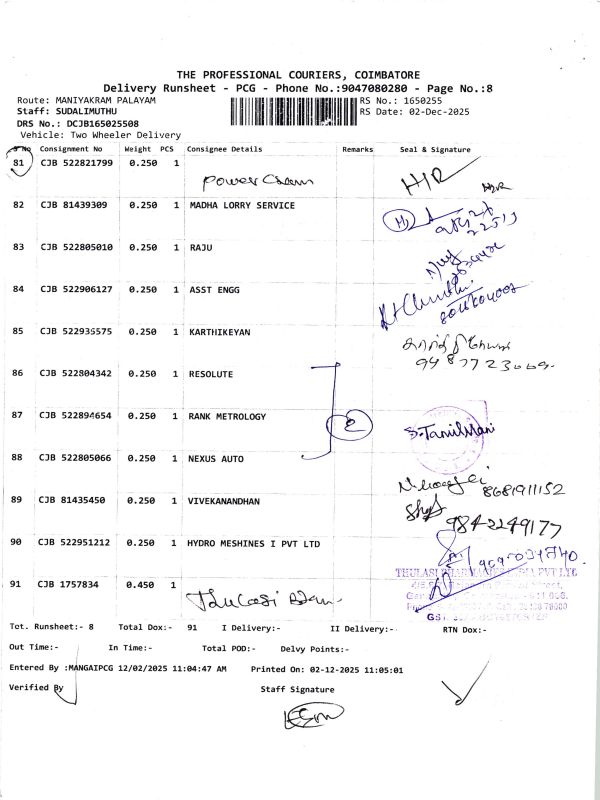 THE PROFESSIONAL COURIERS, COIMBATORE
Delivery Runsheet - PCG - Phone No.:9047080280 - Page No.:8
Route: MANIYAKRAM PALAYAM RS No.: 1650255
Staff: SUDALIMUTHU RS Date: 02-Dec-2025
DRS No.: DCJB165025508
Vehicle: Two Wheeler Delivery
S No Consignment No Weight PCS Consignee Details Remarks Seal & Signature
81 CJB 522821799 0.250 1
H/R
82 CJB 81439309 0.250 1 MADHA LORRY SERVICE
83 CJB 522805010 0.250 1 RAJU
84 CJB 522906127 0.250 1 ASST ENGG
85 CJB 522935575 0.250 1 KARTHIKEYAN
86 CJB 522804342 0.250 1 RESOLUTE
87 CJB 522894654 0.250 1 RANK METROLOGY 2 S.TamilMani
88 CJB 522805066 0.250 1 NEXUS AUTO
8681911152
89 CJB 81435450 0.250 1 VIVEKANANDHAN
9842249177
90 CJB 522951212 0.250 1 HYDRO MESHINES I PVT LTD
91 CJB 1757834 0.450 1
Tot. Runsheet:- 8 Total Dox:- 91 I Delivery:- II Delivery:- RTN Dox:-
Out Time:- In Time:- Total POD:- Delvy Points:-
Entered By :MANGAIPCG 12/02/2025 11:04:47 AM Printed On: 02-12-2025 11:05:01
Verified By Staff Signature